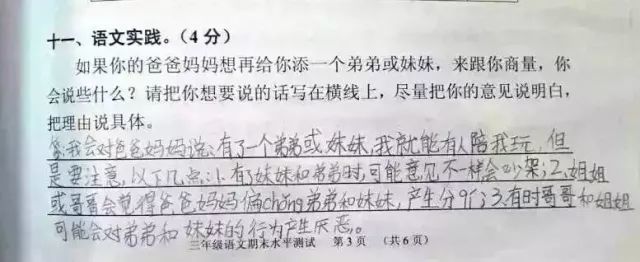 十一、语文实践。（4分）
如果你的爸爸妈妈想再给你添一个弟弟或妹妹，来跟你商量，你
会说些什么？请把你想要说的话写在横线上，尽量把你的意见说明白，
把理由说具体。
答:我会对爸爸妈妈说:有了一个弟弟或妹妹,我就能有人陪我玩,但
是要注意,以下几点:1.有妹妹和弟弟时,可能意见不一样会吵架;2.姐姐
或哥哥会觉得爸爸妈妈偏chǒng弟弟和妹妹,产生分歧;3.有时哥哥和姐姐
可能会对弟弟和妹妹的行为产生厌恶。
三年级语文期末水平测试 第3页 （共6页）